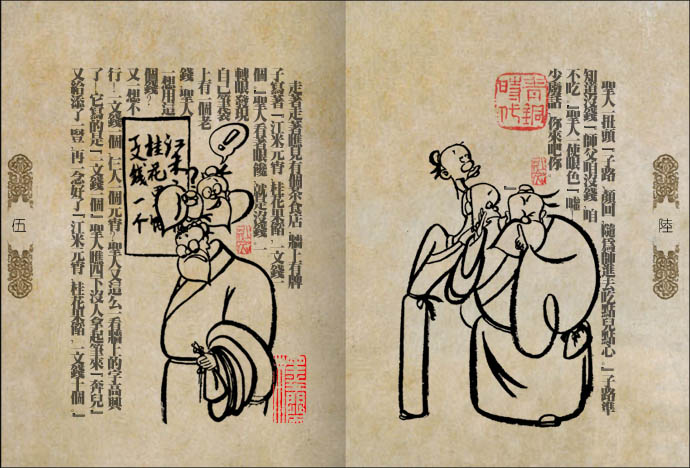 走著走著瞧見有個茶食店,牆上有牌
子寫著『江米元宵,桂花果餡,一文錢一
個。』聖人看著眼饞,就是沒錢,一
轉眼發現
自己筆袋
上有一個老
錢,聖人
一想用這
個錢?
又一想不
行!一文錢一個,仨人一個元宵?聖人又這么一看牆上的字高興
了!它寫的是『一文錢一個』聖人瞧四下沒人拿起筆來『奔兒』
又給添了一豎,再一念好了『江米元宵,桂花果餡,一文錢十個。』
江米
桂花
文錢一个
!
伍
聖人一扭頭『子路,顏回,隨為師進去吃點兒點心。』子路準
知道沒錢『師父咱沒錢,咱
不吃。』聖人一使眼色『噓
少廢話,你來吧你
』
青銅時代
陸